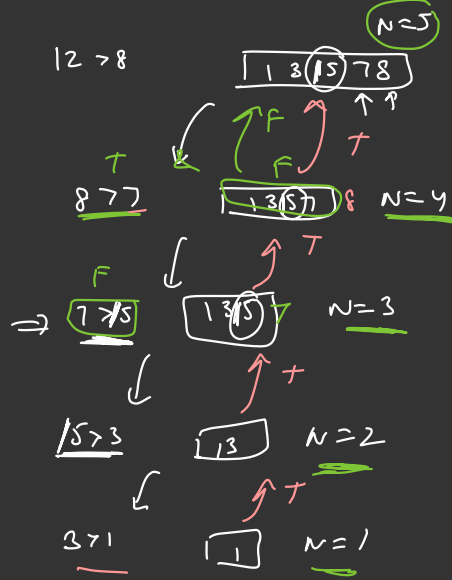 N=5
12 >8
1 3 15 7 8
F
T
T
F
8>7
1 3 15 7 8
N=4
T
F
7>15
1 3 15 7
N=3
T
15>3
1 3
N=2
T
3>1
1
N=1